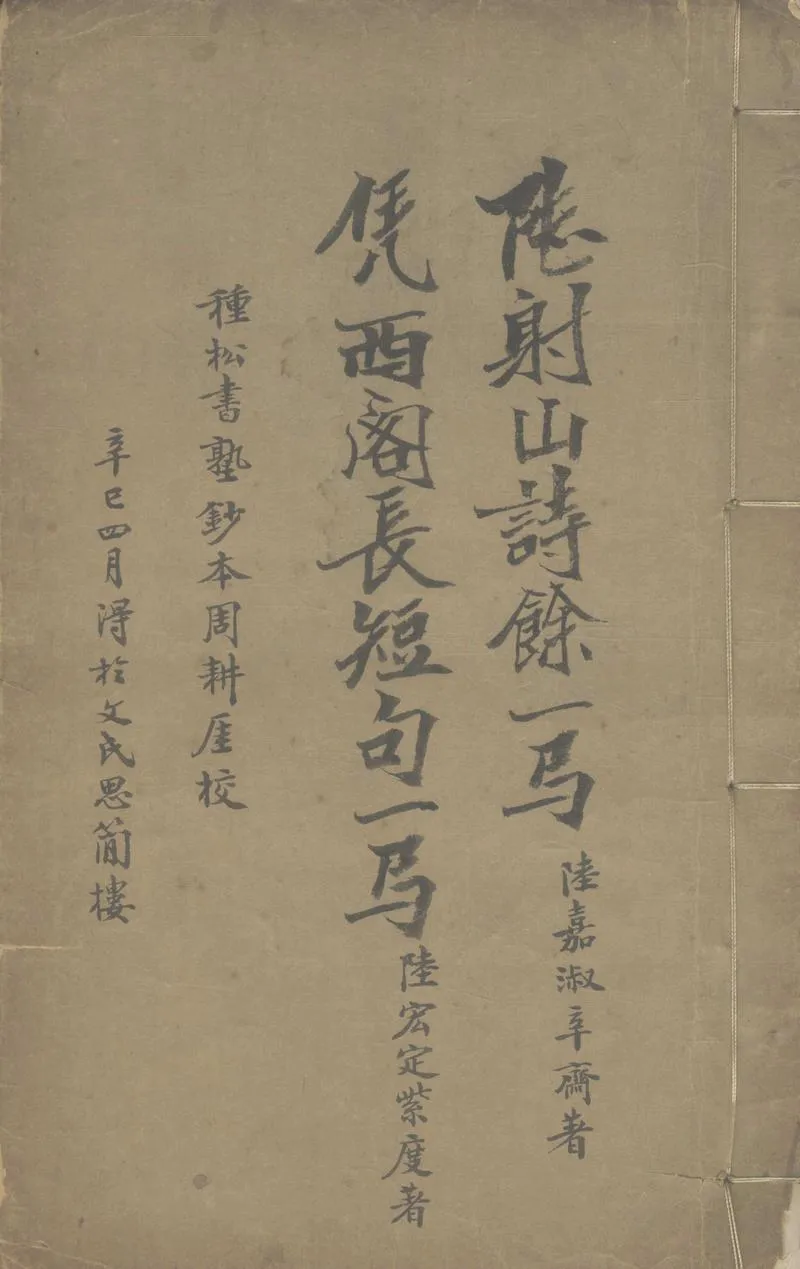 陸射山詩餘一𢎥
陸嘉淑辛齋著
凭西閣長短句一𢎥
陸宏定紫度著
種松書塾鈔本周耕厓校
辛巳四月得於文氏思簡樓